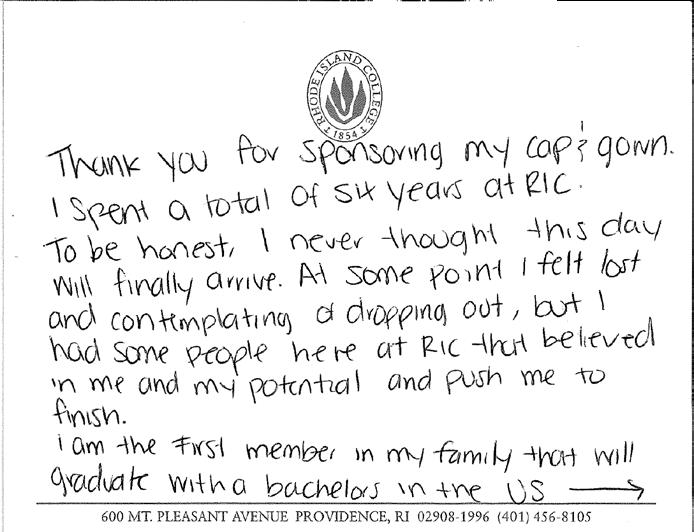 RHODE ISLAND COLLEGE
1854
Thank you for sponsoring my cap & gown.
I spent a total of six years at RIC.
To be honest, I never thought this day
will finally arrive. At some point I felt lost
and contemplating of dropping out, but I
had some people here at RIC that believed
in me and my potential and push me to
finish.
I am the first member in my family that will
graduate with a bachelors in the US →
600 MT. PLEASANT AVENUE PROVIDENCE, RI 02908-1996 (401) 456-8105